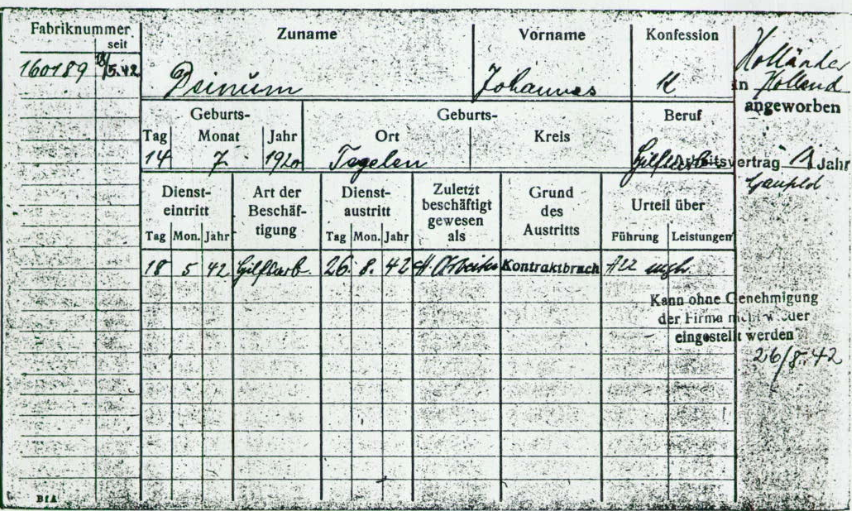 Fabriknummer
seit
Zuname
Vorname
Konfession
Holländer
160189
18/5.42
Johannes
K
in Holland
angeworben
Geburts-
Geburts-
Beruf
Tag
Monat
Jahr
Ort
Kreis
14
7
1920
Tegelen
Arbeitsvertrag
Jahr
Dienst-
eintritt
Art der
Beschäf-
tigung
Dienst-
austritt
Zuletzt
beschäftigt
gewesen
als
Grund
des
Austritts
Urteil über
Tag
Mon.
Jahr
Tag
Mon.
Jahr
Führung
Leistungen
18
5
42
Hilfsarb.
26.
8.
42
H. Arbeiter
Kontraktbruch
Kann ohne Genehmigung
der Firma nicht wieder
eingestellt werden
26/8.42
BIA